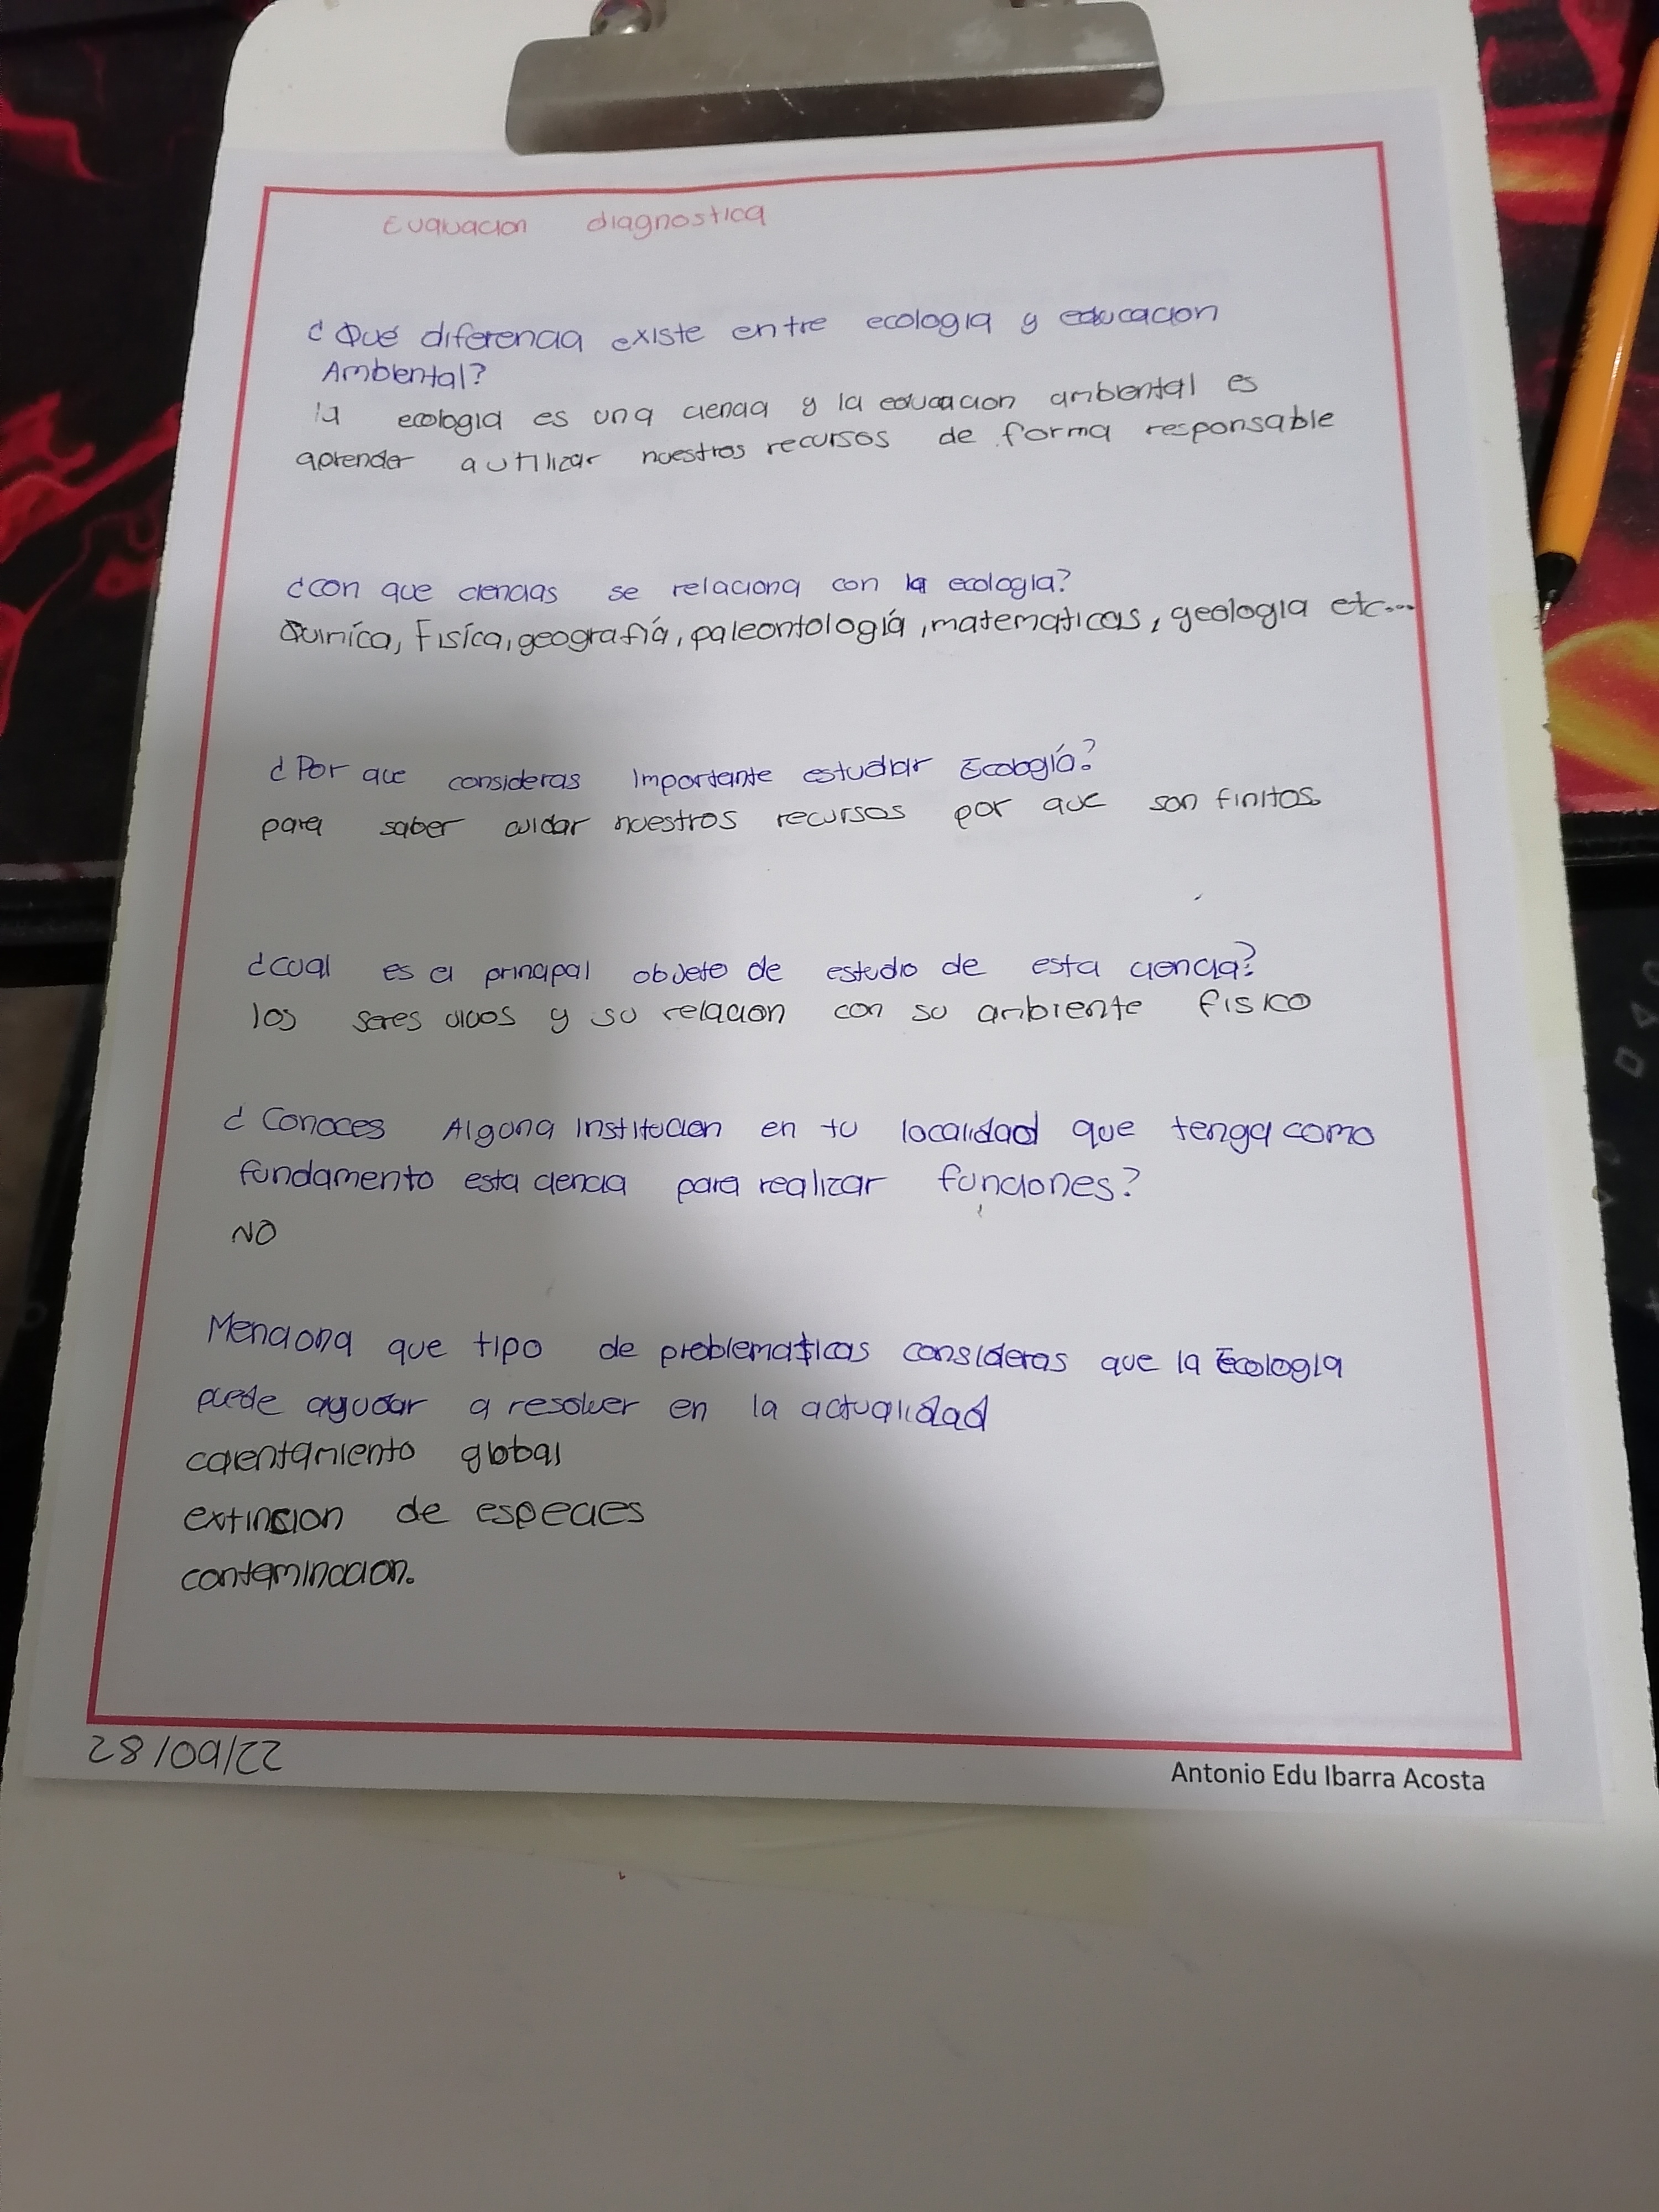 Evaluacion diagnostica
¿Qué diferencia existe entre ecologia y educacion
Ambiental?
la ecologia es una ciencia y la educacion ambiental es
aprender a utilizar nuestros recursos de forma responsable
¿con que ciencias se relaciona con la ecologia?
Quimíca, Fisíca, geografía, paleontología, matematicas, geologia etc...
¿Por que consideras importante estudiar Ecología?
para saber cuidar nuestros recursos por que son finitos.
¿cual es el principal objeto de estudio de esta ciencia?
los seres vivos y su relacion con su ambiente fisico
¿Conoces Alguna institucion en tu localidad que tenga como
fundamento esta ciencia para realizar funciones?
NO
Menciona que tipo de problematicas consideras que la Ecologia
puede ayudar a resolver en la actualidad
calentamiento global
extincion de especies
contaminacion.
28/09/22
Antonio Edu Ibarra Acosta